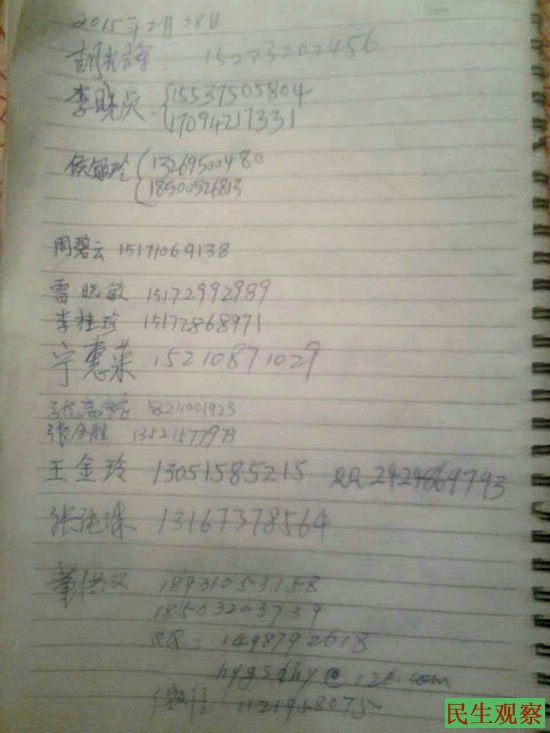 2015年2月28日
15223202456
李晓贞 15537505804
17094217331
侯敏玲 13269500480
18500526813
周碧云 15171069138
雷晓敏 15172992989
李桂珍 15172868971
宁惠荣 15210871029
13521577973
王金玲 13051585215 QQ 2424864793
13167378564
董洪义 18931053158
18503203739
QQ: 1498792618
hygsdhy@126.com
微信 1121958075
民生观察